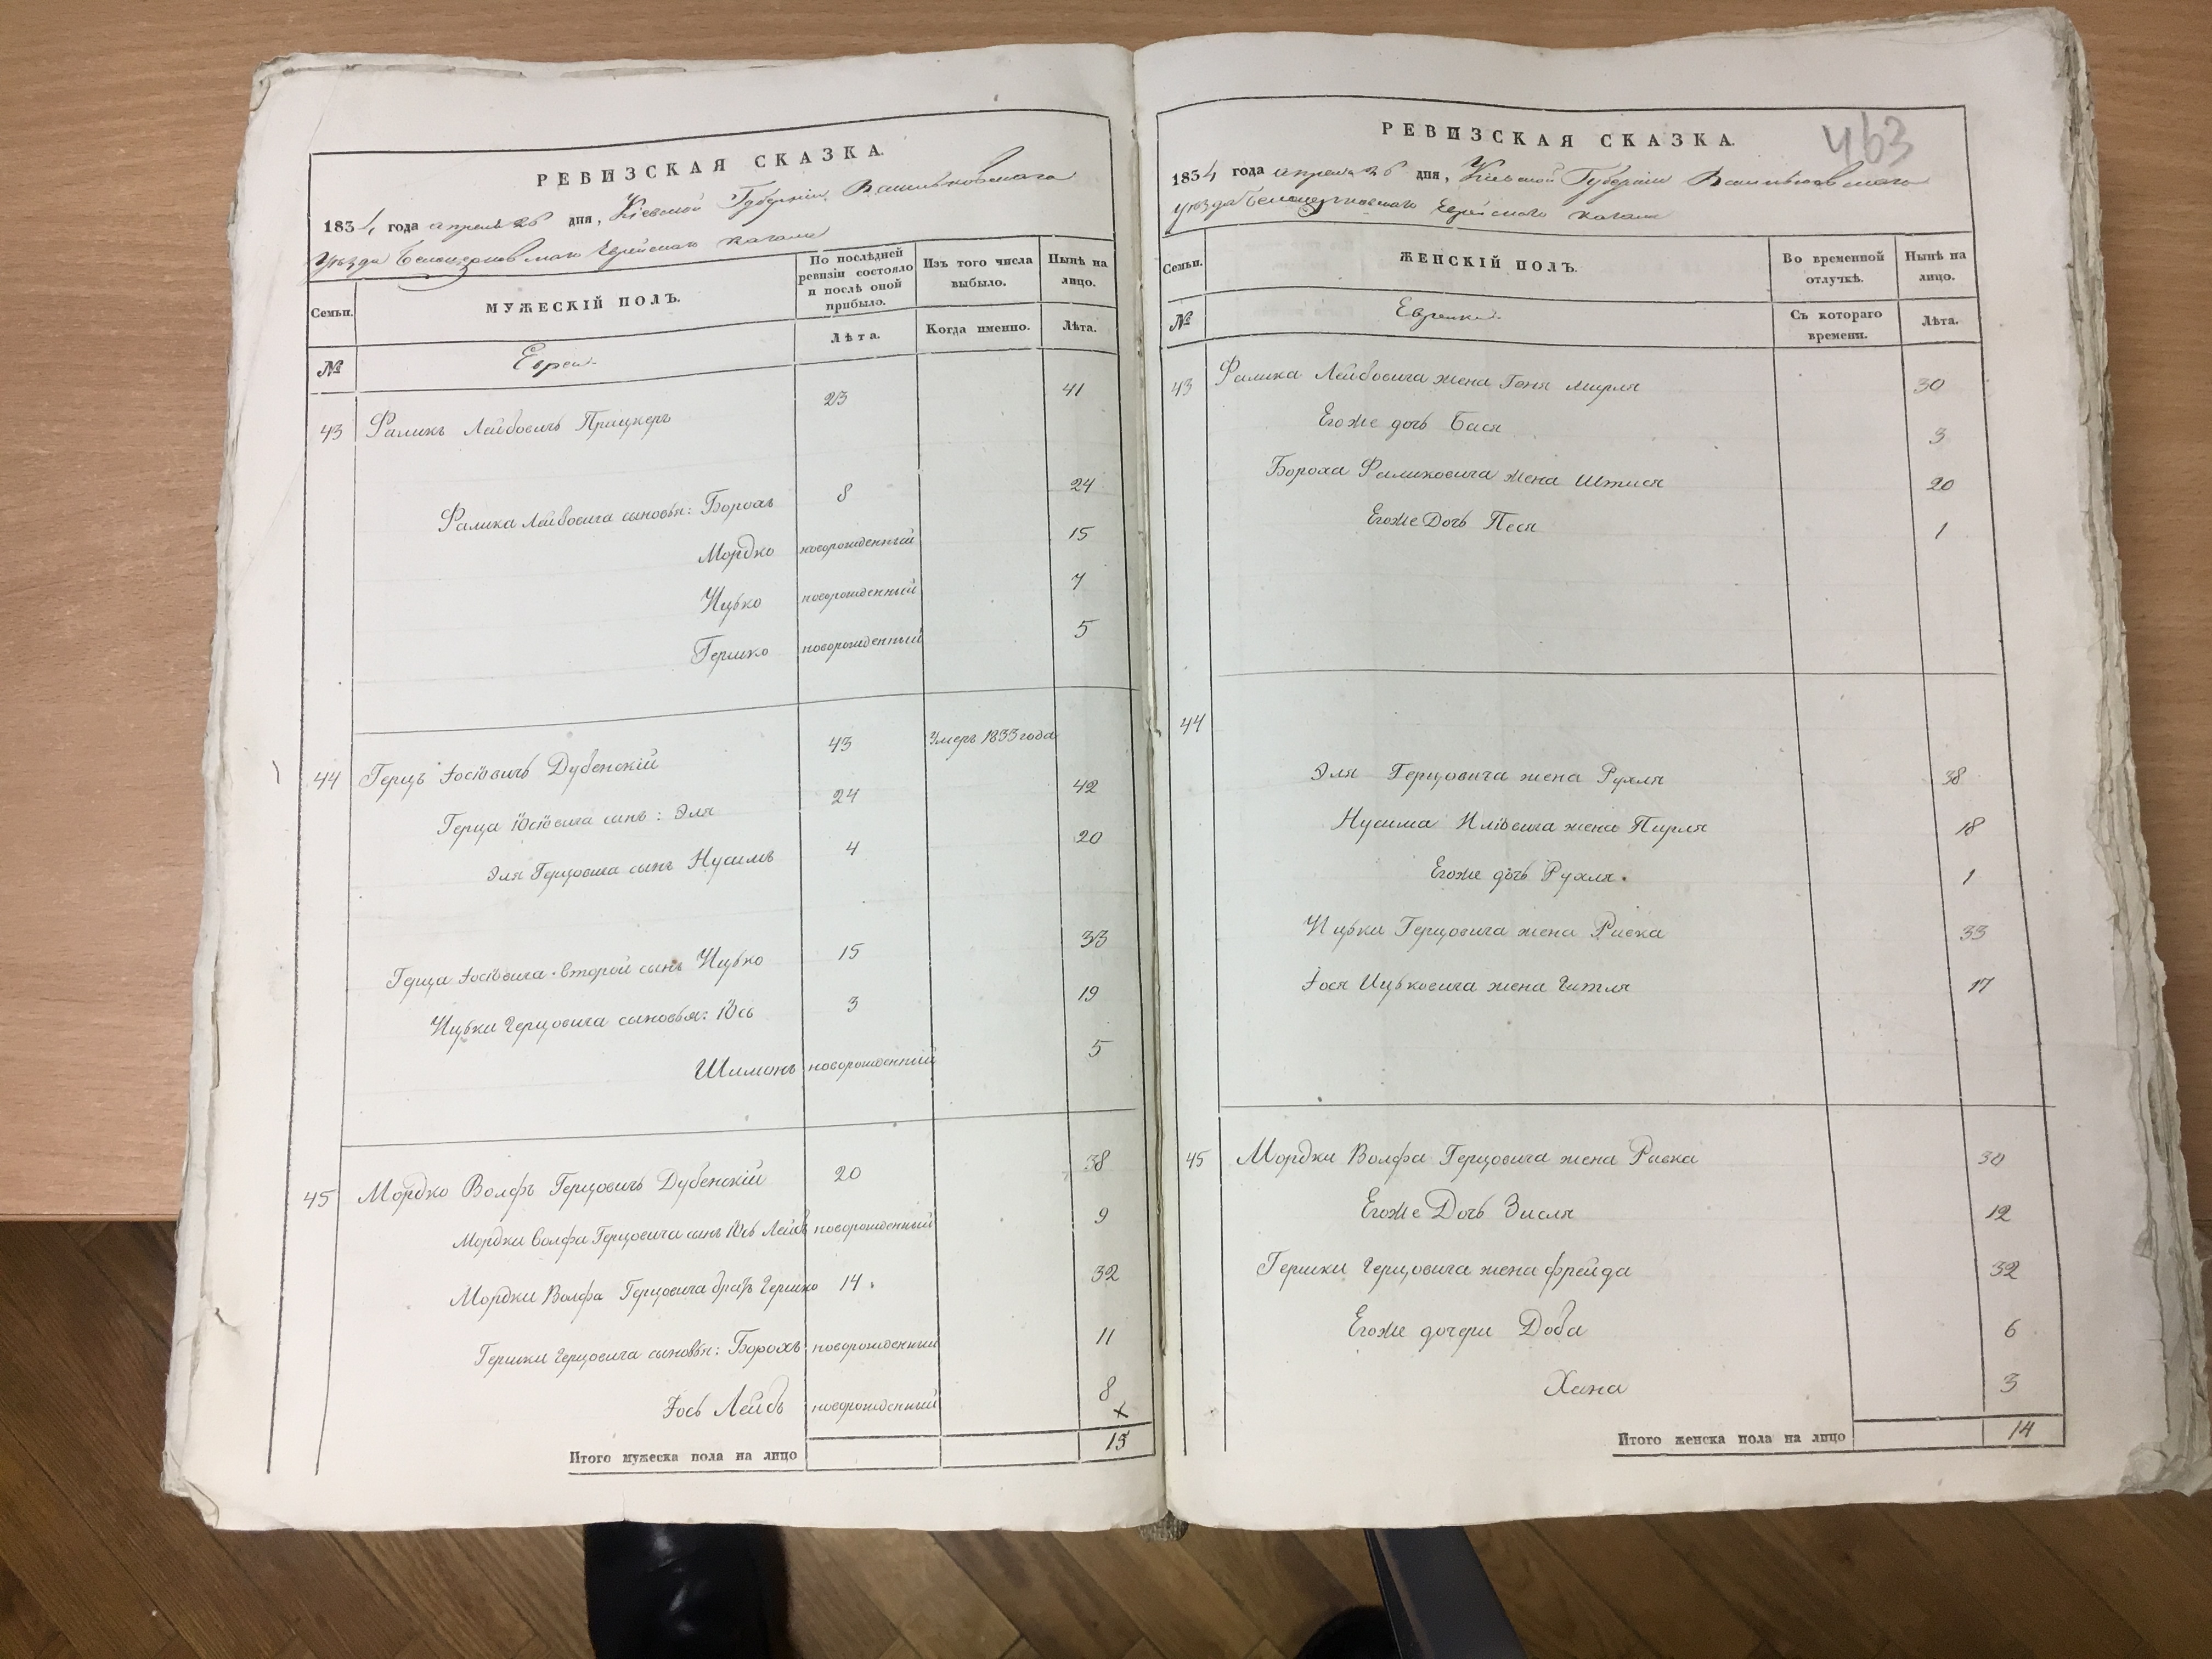 РЕВИЗСКАЯ СКАЗКА.
1834 года апреля 26 дня, Кіевской Губерніи Васильковскаго
Уѣзда Белоцерковскаго Еврейскаго кагала
Семьи.
МУЖЕСКІЙ ПОЛЪ.
По послѣдней ревизіи состояло и послѣ оной прибыло.
Изъ того числа выбыло.
Нынѣ на лицо.
№
Евреи
Лѣта.
Когда именно.
Лѣта.
43 Фаликъ Лейбовичъ Прицкеръ 23 41
Фалика Лейбовича сыновья: Борохъ 8 24
Мордко новорожденный 15
Ицько новорожденный 7
Гершко новорожденный 5
44 Герцъ Іосіовичъ Дубенскій 43 Умеръ 1833 года
Герца Іосіовича сынъ: Эля 24 42
Эля Герцовича сынъ Нусимъ 4 20
Герца Іосіовича второй сынъ Ицько 15 33
Ицьки Герцовича сыновья: Іось 3 19
Шимонъ новорожденный 5
45 Мордко Волфъ Герцовичъ Дубенскій 20 38
Мордки Волфа Герцовича сынъ Іось Лейбъ новорожденный 9
Мордки Волфа Герцовича братъ Гершко 14 32
Гершки Герцовича сыновья: Борохъ новорожденный 11
Іось Лейбъ новорожденный 8
х
Итого мужеска пола на лицо 15
463
РЕВИЗСКАЯ СКАЗКА.
1834 года апреля 26 дня, Кіевской Губерніи Васильковскаго
Уѣзда Белоцерковскаго Еврейскаго кагала
Семьи.
ЖЕНСКІЙ ПОЛЪ.
Во временной отлучкѣ.
Нынѣ на лицо.
№
Еврейки
Съ котораго времени.
Лѣта.
43 Фалика Лейбовича жена Геня Мирля 30
Егоже дочь Бася 3
Бороха Фаликовича жена 20
Егоже Дочь Песя 1
44
Эля Герцовича жена Рухля 38
Нусима Иліовича жена Пирля 18
Егоже дочь Рухля. 1
Ицьки Герцовича жена Ривка 33
Іося Ицьковича жена Гитля 17
45 Мордки Волфа Герцовича жена Ривка 30
Егоже Дочь Зисля 12
Гершки Герцовича жена фрейда 32
Егоже дочери Доба 6
Хана 3
Итого женска пола на лицо 14